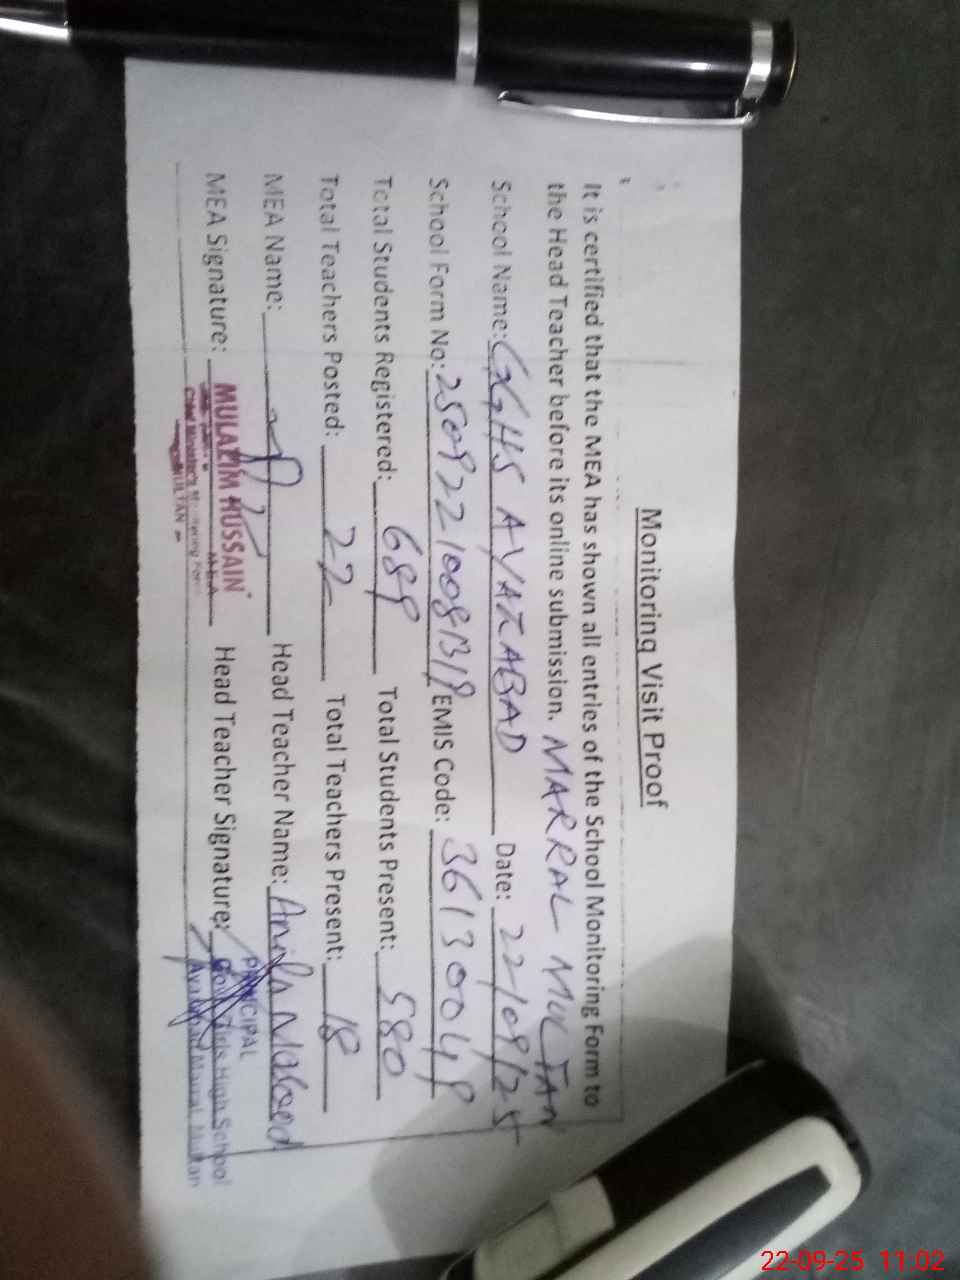 Monitoring Visit Proof
It is certified that the MEA has shown all entries of the School Monitoring Form to
the Head Teacher before its online submission. MARRAL MULTAN
School Name: GGHS AYAZABAD Date: 22/09/25
School Form No: EMIS Code: 36130048
Total Students Registered: 689 Total Students Present: 580
Total Teachers Posted: 22 Total Teachers Present: 18
MEA Name: Head Teacher Name: Anila
MEA Signature: MULAZIM HUSSAIN Head Teacher Signature:
MEA
Chief Minister's Monitoring Force
MULTAN
PRINCIPAL
Govt. Girls High School
Ayazabad Marral Multan
22-09-25 11:02